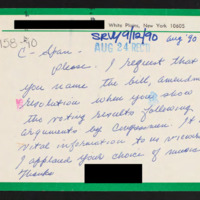 White Plains, New York 10605
SRV 9/12/90
AUG 24 REC'D
Aug '90
158-90
C-Span -
Please - I request that
you name the bill, amendment
resolution when you show
the voting results following
arguments by Congressmen. It is
vital information to us viewers
I applaud your choice of music
Thanks